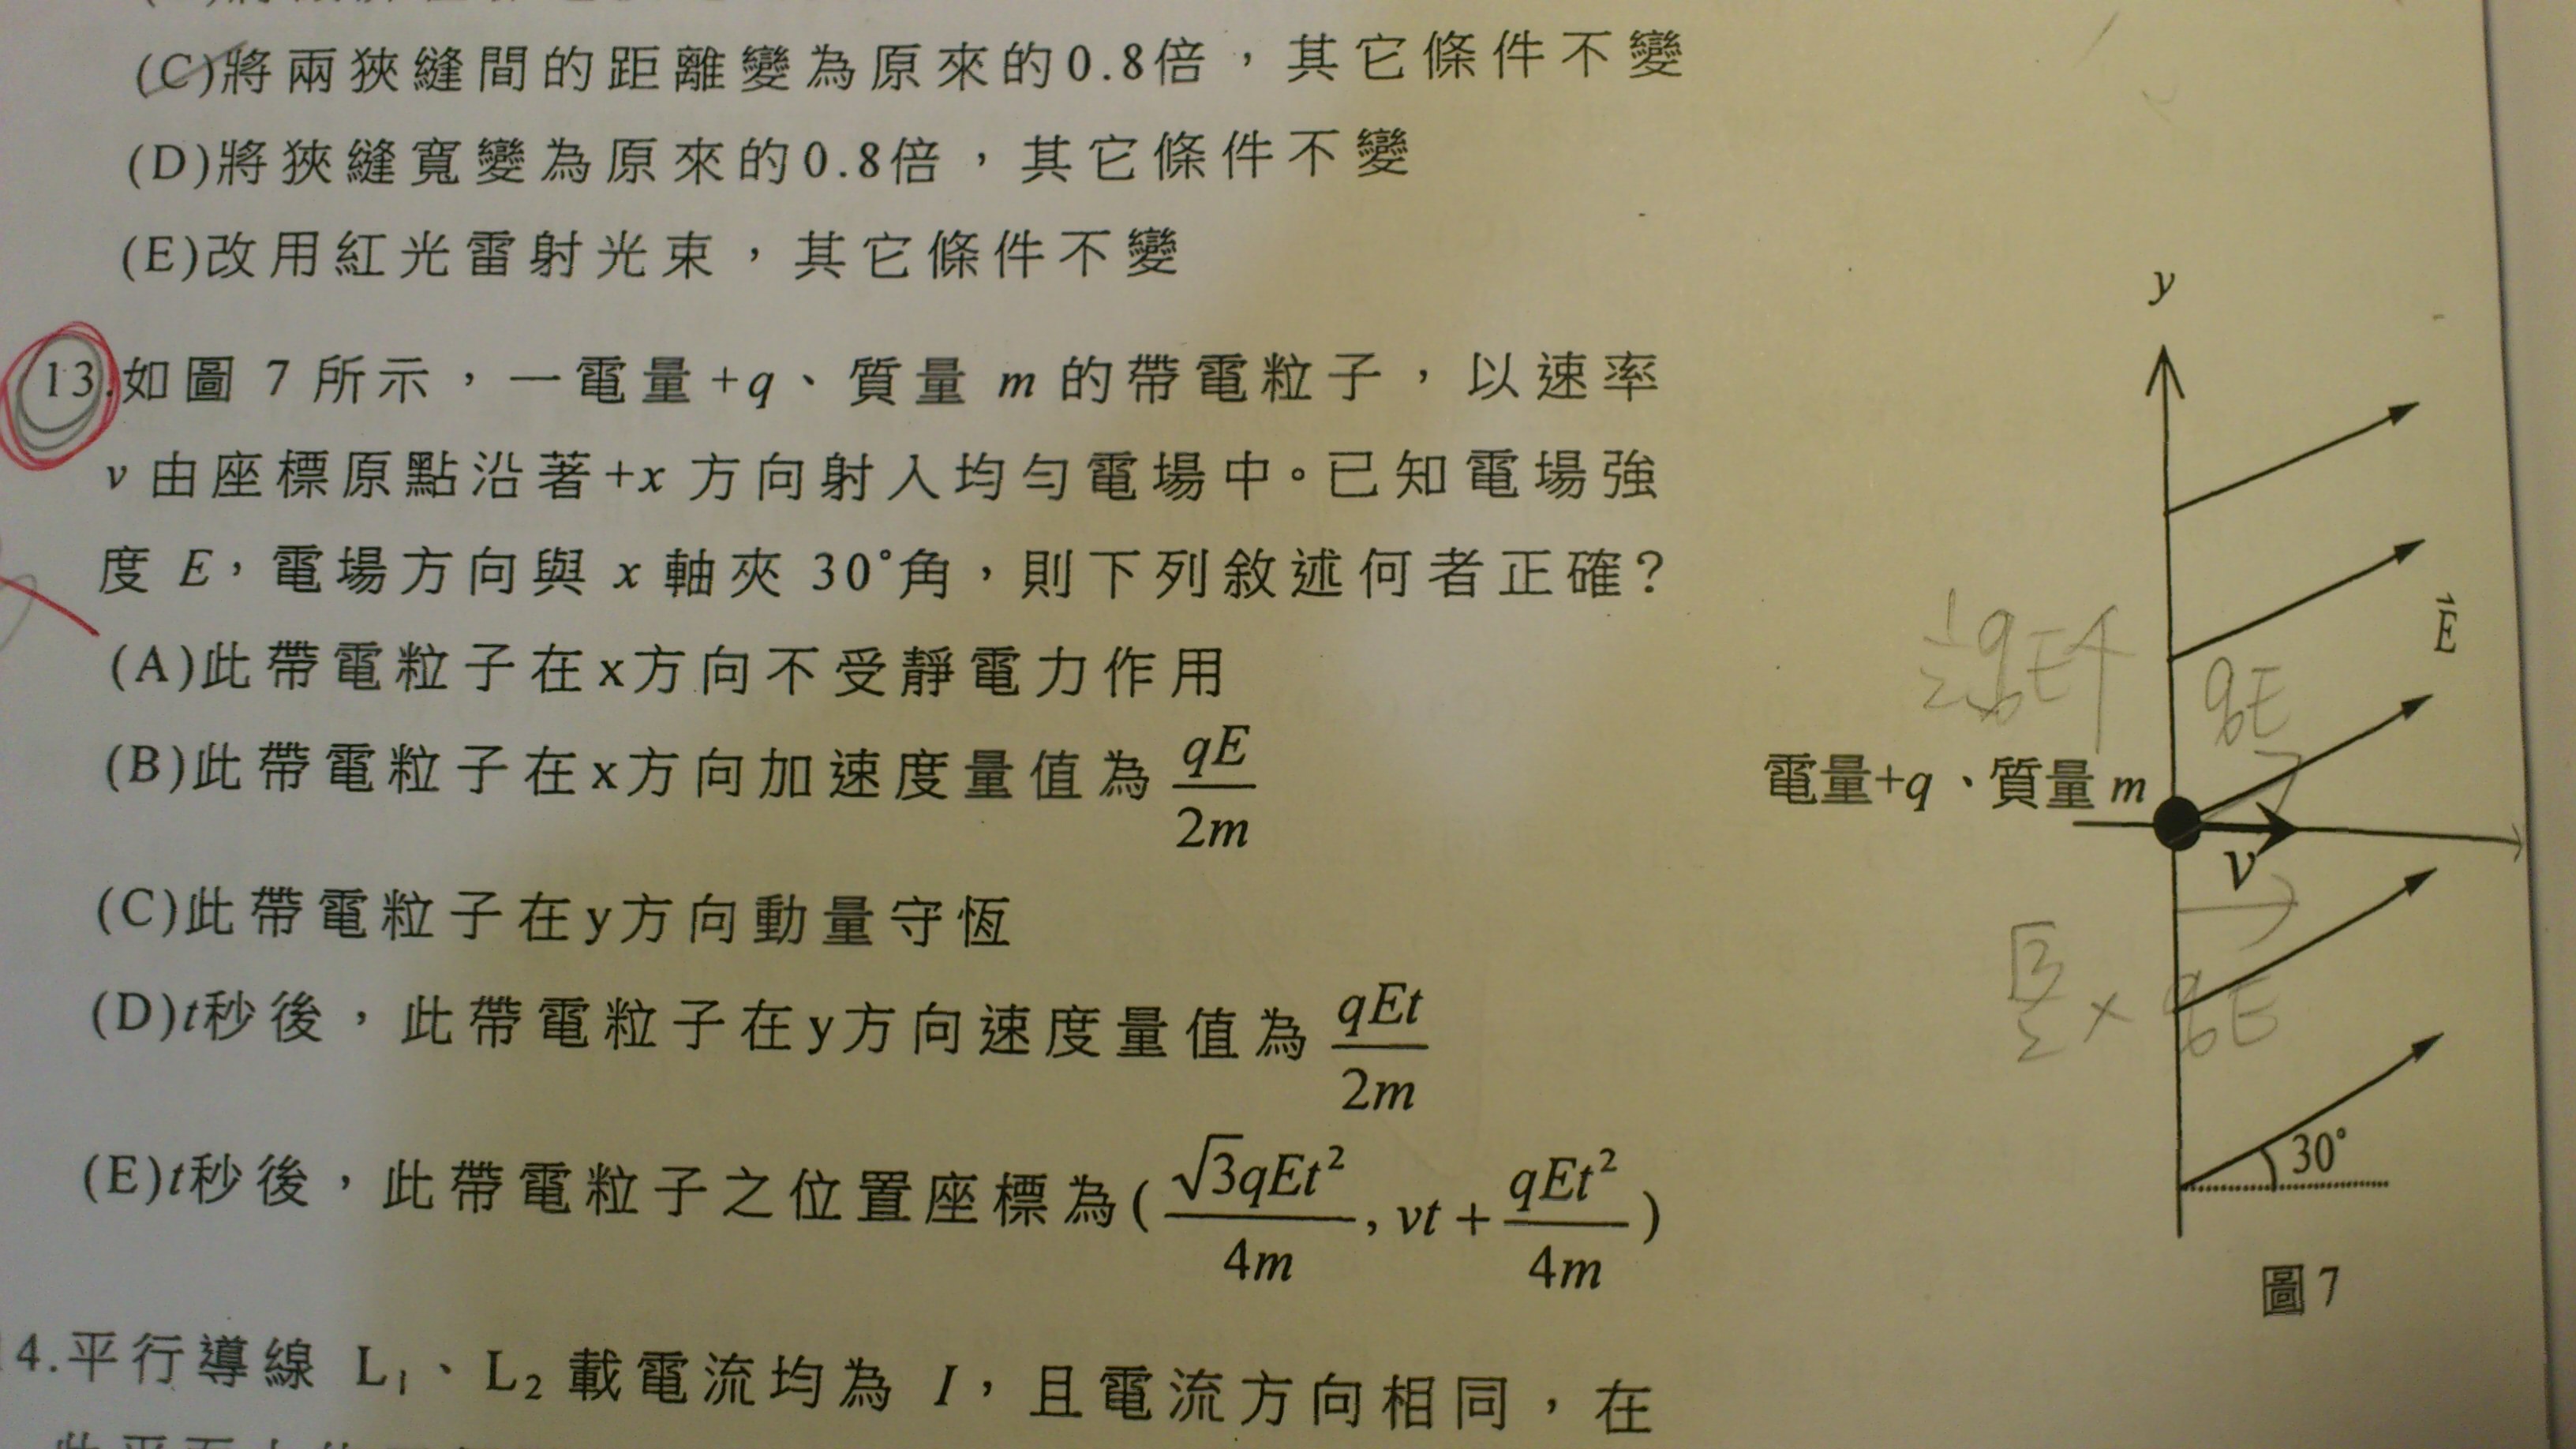 (C)將兩狹縫間的距離變為原來的0.8倍，其它條件不變
(D)將狹縫寬變為原來的0.8倍，其它條件不變
(E)改用紅光雷射光束，其它條件不變
13.如圖 7 所示，一電量+q、質量 m 的帶電粒子，以速率
v 由座標原點沿著+x 方向射入均勻電場中。已知電場強
度 E，電場方向與 x 軸夾 30°角，則下列敘述何者正確?
(A)此帶電粒子在x方向不受靜電力作用
(B)此帶電粒子在x方向加速度量值為 qE/2m
(C)此帶電粒子在y方向動量守恆
(D)t秒後，此帶電粒子在y方向速度量值為 qEt/2m
(E)t秒後，此帶電粒子之位置座標為(√3qEt²/4m, vt + qEt²/4m)
14.平行導線 L₁、L₂ 載電流均為 I，且電流方向相同，在
y
E⃗
qE
電量+q、質量 m
v
√3/2 × qE
30°
圖7